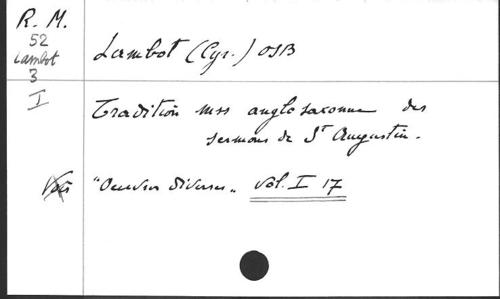 R. M.
52
Lambot
3
I
Lambot (Cyr.) OSB
Tradition mss anglosaxonne des
sermons de St Augustin.
Voir "Oeuvres diverses" vol. I 17